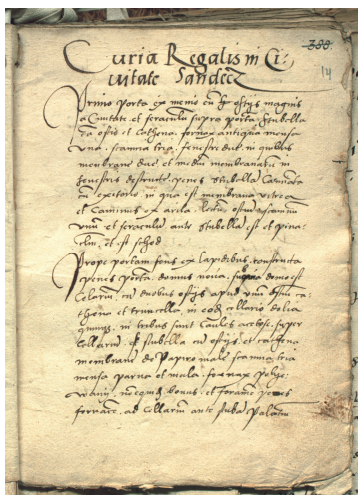 388.
14
Curia Regalis in Ci-
uitate Sandecz
Primo porta ex meno cū ostijs magnis
a Ciuitate et seraculū supra porta stubella
ostio et Cathena fornax antiqua mensa
vna. scamna tria. fenestre due. in quibus
membrane due et mediū membranatū in
fenestris destructe. penes stubellā Caminata
cū exitorio in qua est membrana vitrea
et Caminus ex arcla. ostiū scamnū
vnū et seraculū ante stubellā est
et est schod
Prope portam fons ex lapidibus constructa
penes portā domus noua. supra domo est
Celarium cū duobus ostijs apud vnū ostiū ca-
thena et truncella in eodē cellario dolia
quinqȝ. in tribus sunt Caules. super
Cellariū est stubella cū ostijs. et cathena
membrane de Papiro male scamna tria
mensa parua et mala. fornax
non equidē bonus. et foramē penes
fornacē. ad Cellariū ante stubā Palatiū